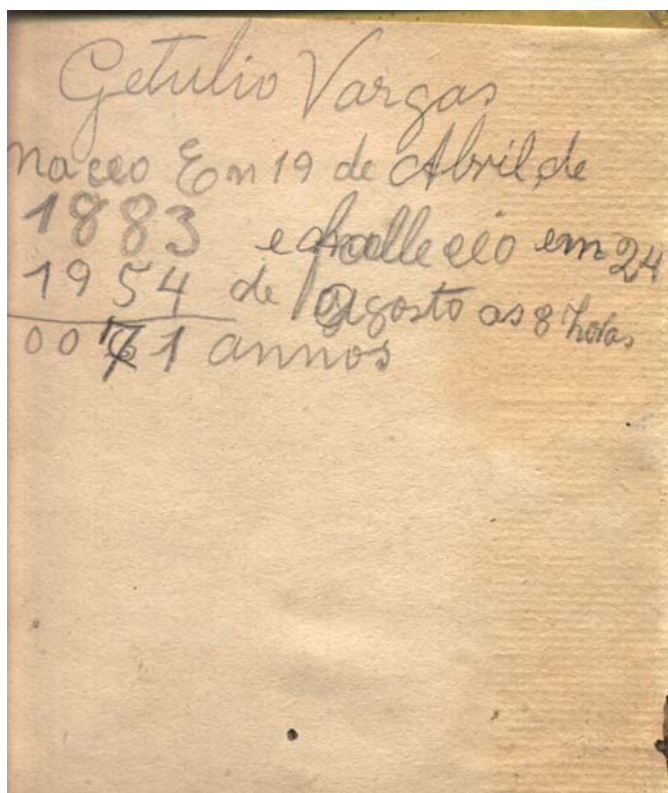 Getulio Vargas
naceo Em 19 de Abril de
1883 e falleceo em 24
1954 de agosto as 8 horas
0071 annos